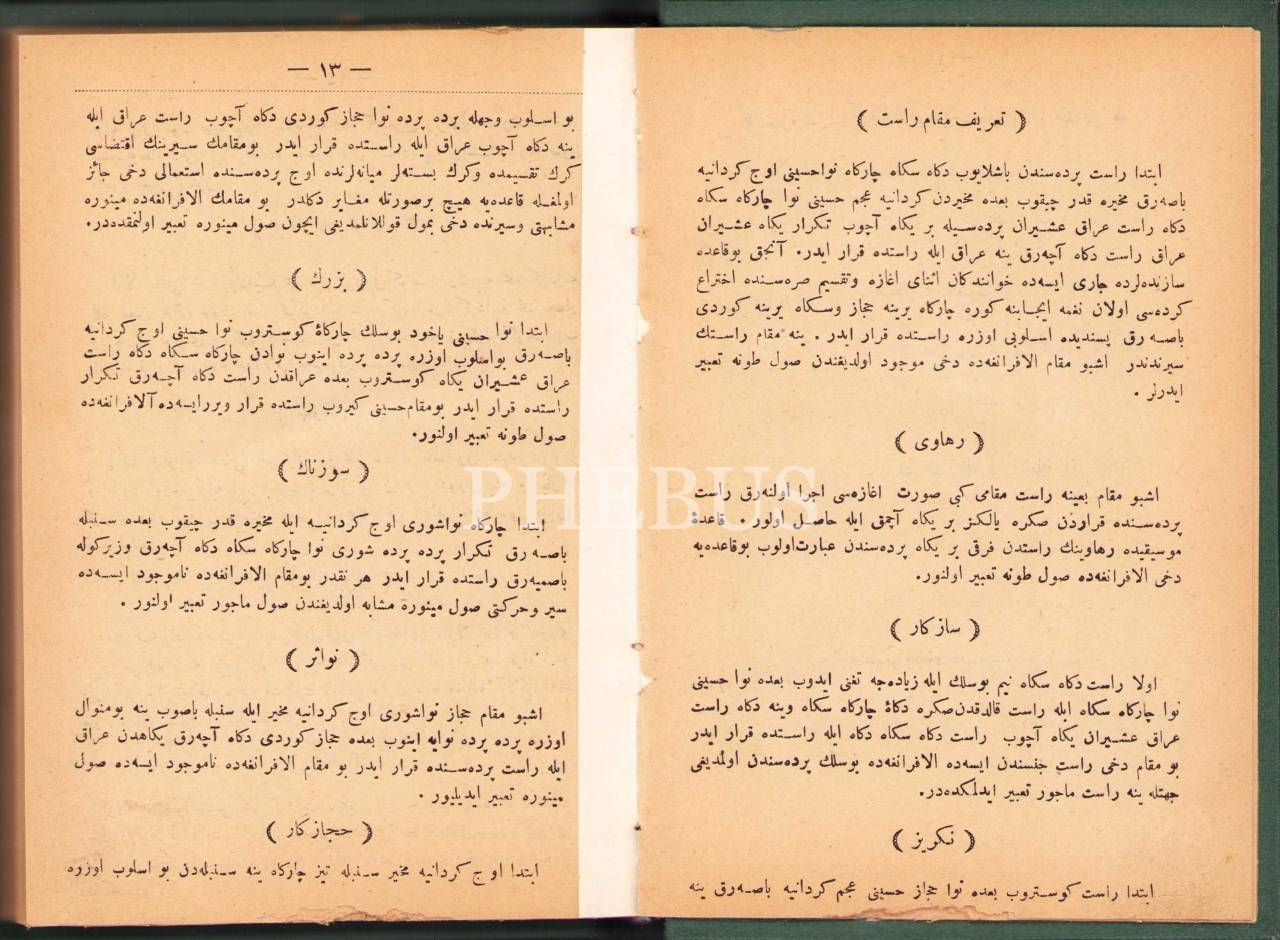 ( تعریف مقام راست )
ابتدا راست پرده‌سندن باشلایوب دکاه سکاه چارکاه نواحسینی اوج کردانیه
باصه‌رق مخیره قدر چیقوب بعده مخیردن کردانیه عجم حسینی نوا چارکاه سکاه
دکاه راست عراق عشیران پرده‌سیله بر یکاه آچوب تکرار یکاه عشیران
عراق راست دکاه آچه‌رق ینه عراق ایله راستده قرار ایدر. آنجق بوقاعده
سازنده‌لرده جاری ایسه‌ده خوانندکان اثنای اغازه وتقسیم صره‌سنده اختراع
کرده‌سی اولان نغمه ایجابنه کوره چارکاه یرینه حجاز وسکاه یرینه کوردی
باصه‌رق پسندیده اسلوبی اوزره راستده قرار ایدر . ینه مقام راستك
سیرندندر اشبو مقام الافرانغه‌ده دخی موجود اولدیغندن صول طونه تعبیر
ایدرلر .
( رهاوی )
اشبو مقام بعینه راست مقامی کبی صورت اغازه‌سی اجرا اولنه‌رق راست
پرده‌سنده قراردن صکره یالکز بر یکاه آچمق ایله حاصل اولور قاعدهٔ
موسیقیده رهاوینك راستدن فرقی بر یکاه پرده‌سندن عبارت‌اولوب بوقاعده‌یه
دخی الافرانغه‌ده صول طونه تعبیر اولنور.
( سازکار )
اولا راست دکاه سکاه نیم بوسلك ایله زیاده‌جه تغنی ایدوب بعده نوا حسینی
نوا چارکاه سکاه ایله راست قالدقدن‌صکره دکاهٔ چارکاه سکاه وینه دکاه راست
عراق عشیران یکاه آچوب راست دکاه سکاه دکاه ایله راستده قرار ایدر
بو مقام دخی راست جنسندن ایسه‌ده الافرانغه‌ده بوسلك پرده‌سندن اولمدیغی
جهتله ینه راست ماجور تعبیر ایدلمکده‌در.
( نکریز )
ابتدا راست کوستروب بعده نوا حجاز حسینی عجم کردانیه باصه‌رق ینه
— ١٣ —
بو اسلوب وجهله پرده پرده نوا حجاز کوردی دکاه آچوب راست عراق ایله
ینه دکاه آچوب عراق ایله راستده قرار ایدر بومقامك سیرینك اقتضاسی
کرك تقسیمده وکرك بسته‌لر میانه‌لرنده اوج پرده‌سنده استعمالی دخی جائز
اولمغله قاعده‌یه هیچ برصورتله مغایر دکلدر بو مقامك الافرانغه‌ده مینوره
مشابهتی وسیرنده دخی بمول قوللانلمدیغی ایچون صول مینوره تعبیر اولنمقده‌در.
( بزرك )
ابتدا نوا حسینی یاخود بوسلك چارکاهٔ کوستروب نوا حسینی اوج کردانیه
باصه‌رق بواسلوب اوزره پرده پرده اینوب نوادن چارکاه سکاه دکاه راست
عراق عشیران یکاه کوستروب بعده عراقدن راست دکاه آچه‌رق تکرار
راستده قرار ایدر بومقام‌حسینی کیروب راستده قرار ویررایسه‌ده آلافرانغه‌ده
صول طونه تعبیر اولنور.
( سوزناك )
ابتدا چارکاه نواشوری اوج کردانیه ایله مخیره قدر چیقوب بعده سنبله
باصه‌رق تکرار پرده پرده شوری نوا چارکاه سکاه دکاه آچه‌رق وزیرکوله
باصمیه‌رق راستده قرار ایدر هر نقدر بومقام الافرانغه‌ده ناموجود ایسه‌ده
سیر وحرکتی صول مینوره مشابه اولدیغندن صول ماجور تعبیر اولنور .
( نواثر )
اشبو مقام حجاز نواشوری اوج کردانیه مخیر ایله سنبله باصوب ینه بومنوال
اوزره پرده پرده نوایه اینوب بعده حجاز کوردی دکاه آچه‌رق یکاهدن عراق
ایله راست پرده‌سنده قرار ایدر بو مقام الافرانغه‌ده ناموجود ایسه‌ده صول
مینوره تعبیر ایدیلیور .
( حجازکار )
ابتدا اوج کردانیه مخیر سنبله تیز چارکاه ینه سنبله‌دن بو اسلوب اوزره
PHEBUS